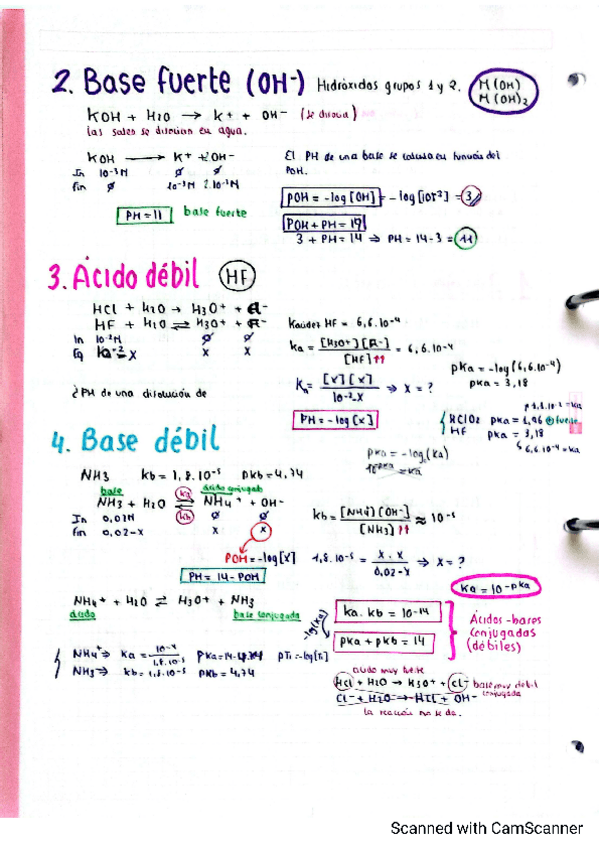 2. Base fuerte (OH-) Hidróxidos grupos 1 y 2. M(OH) M(OH)2
KOH + H2O → K+ + OH- (se disocia)
Las sales se disocian en agua.
KOH → K+ + OH-
In 10-3M ∅ ∅
fin ∅ 10-3M
El PH de una base se calcula en función del
POH.
POH = -log [OH] = -log [10-3] = 3
POH + PH = 14
3 + PH = 14 ⇒ PH = 14-3 = 11
PH = 11 base fuerte
3. Ácido débil HF
HCl + H2O → H3O+ + Cl-
HF + H2O ⇌ H3O+ + F-
In 10-2M ∅ ∅
Eq 10-2-x x x
Kaúdez HF = 6,6.10-4
Ka = [H3O+][F-] / [HF] = 6,6.10-4
Ka = [x][x] / 10-2-x ⇒ x = ?
PH = -log [x]
¿PH de una disolución de
pKa = -log (6,6.10-4)
pKa = 3,18
HClO2 pKa = 1,96 fuerte
HF pKa = 3,18
6,6.10-4 = Ka
pKa = -log (Ka)
10-pKa = Ka
4. Base débil
NH3 Kb = 1,8.10-5 pKb = 4,74
base ácido conjugado
NH3 + H2O ⇌ NH4+ + OH-
Ka
Kb
In 0,02M ∅ ∅
fin 0,02-x x x
POH = -log [x]
PH = 14 - POH
Kb = [NH4][OH-] / [NH3] ≈ 10-5
1,8.10-5 = x.x / 0,02-x ⇒ x = ?
Ka = 10-pKa
NH4+ + H2O ⇌ H3O+ + NH3
ácido base conjugada
-log(Ka)
Ka . Kb = 10-14
pKa + pKb = 14
Ácidos-bases
conjugadas
(débiles)
NH4+ → Ka = 10-14 / 1,8.10-5 pKa = 14-4,74
NH3 → Kb = 1,8.10-5 pKb = 4,74
ácido muy fuerte
HCl + H2O → H3O+ + Cl- base muy débil
conjugada
Cl- + H2O → HCl + OH-
la reacción no se da.
Scanned with CamScanner